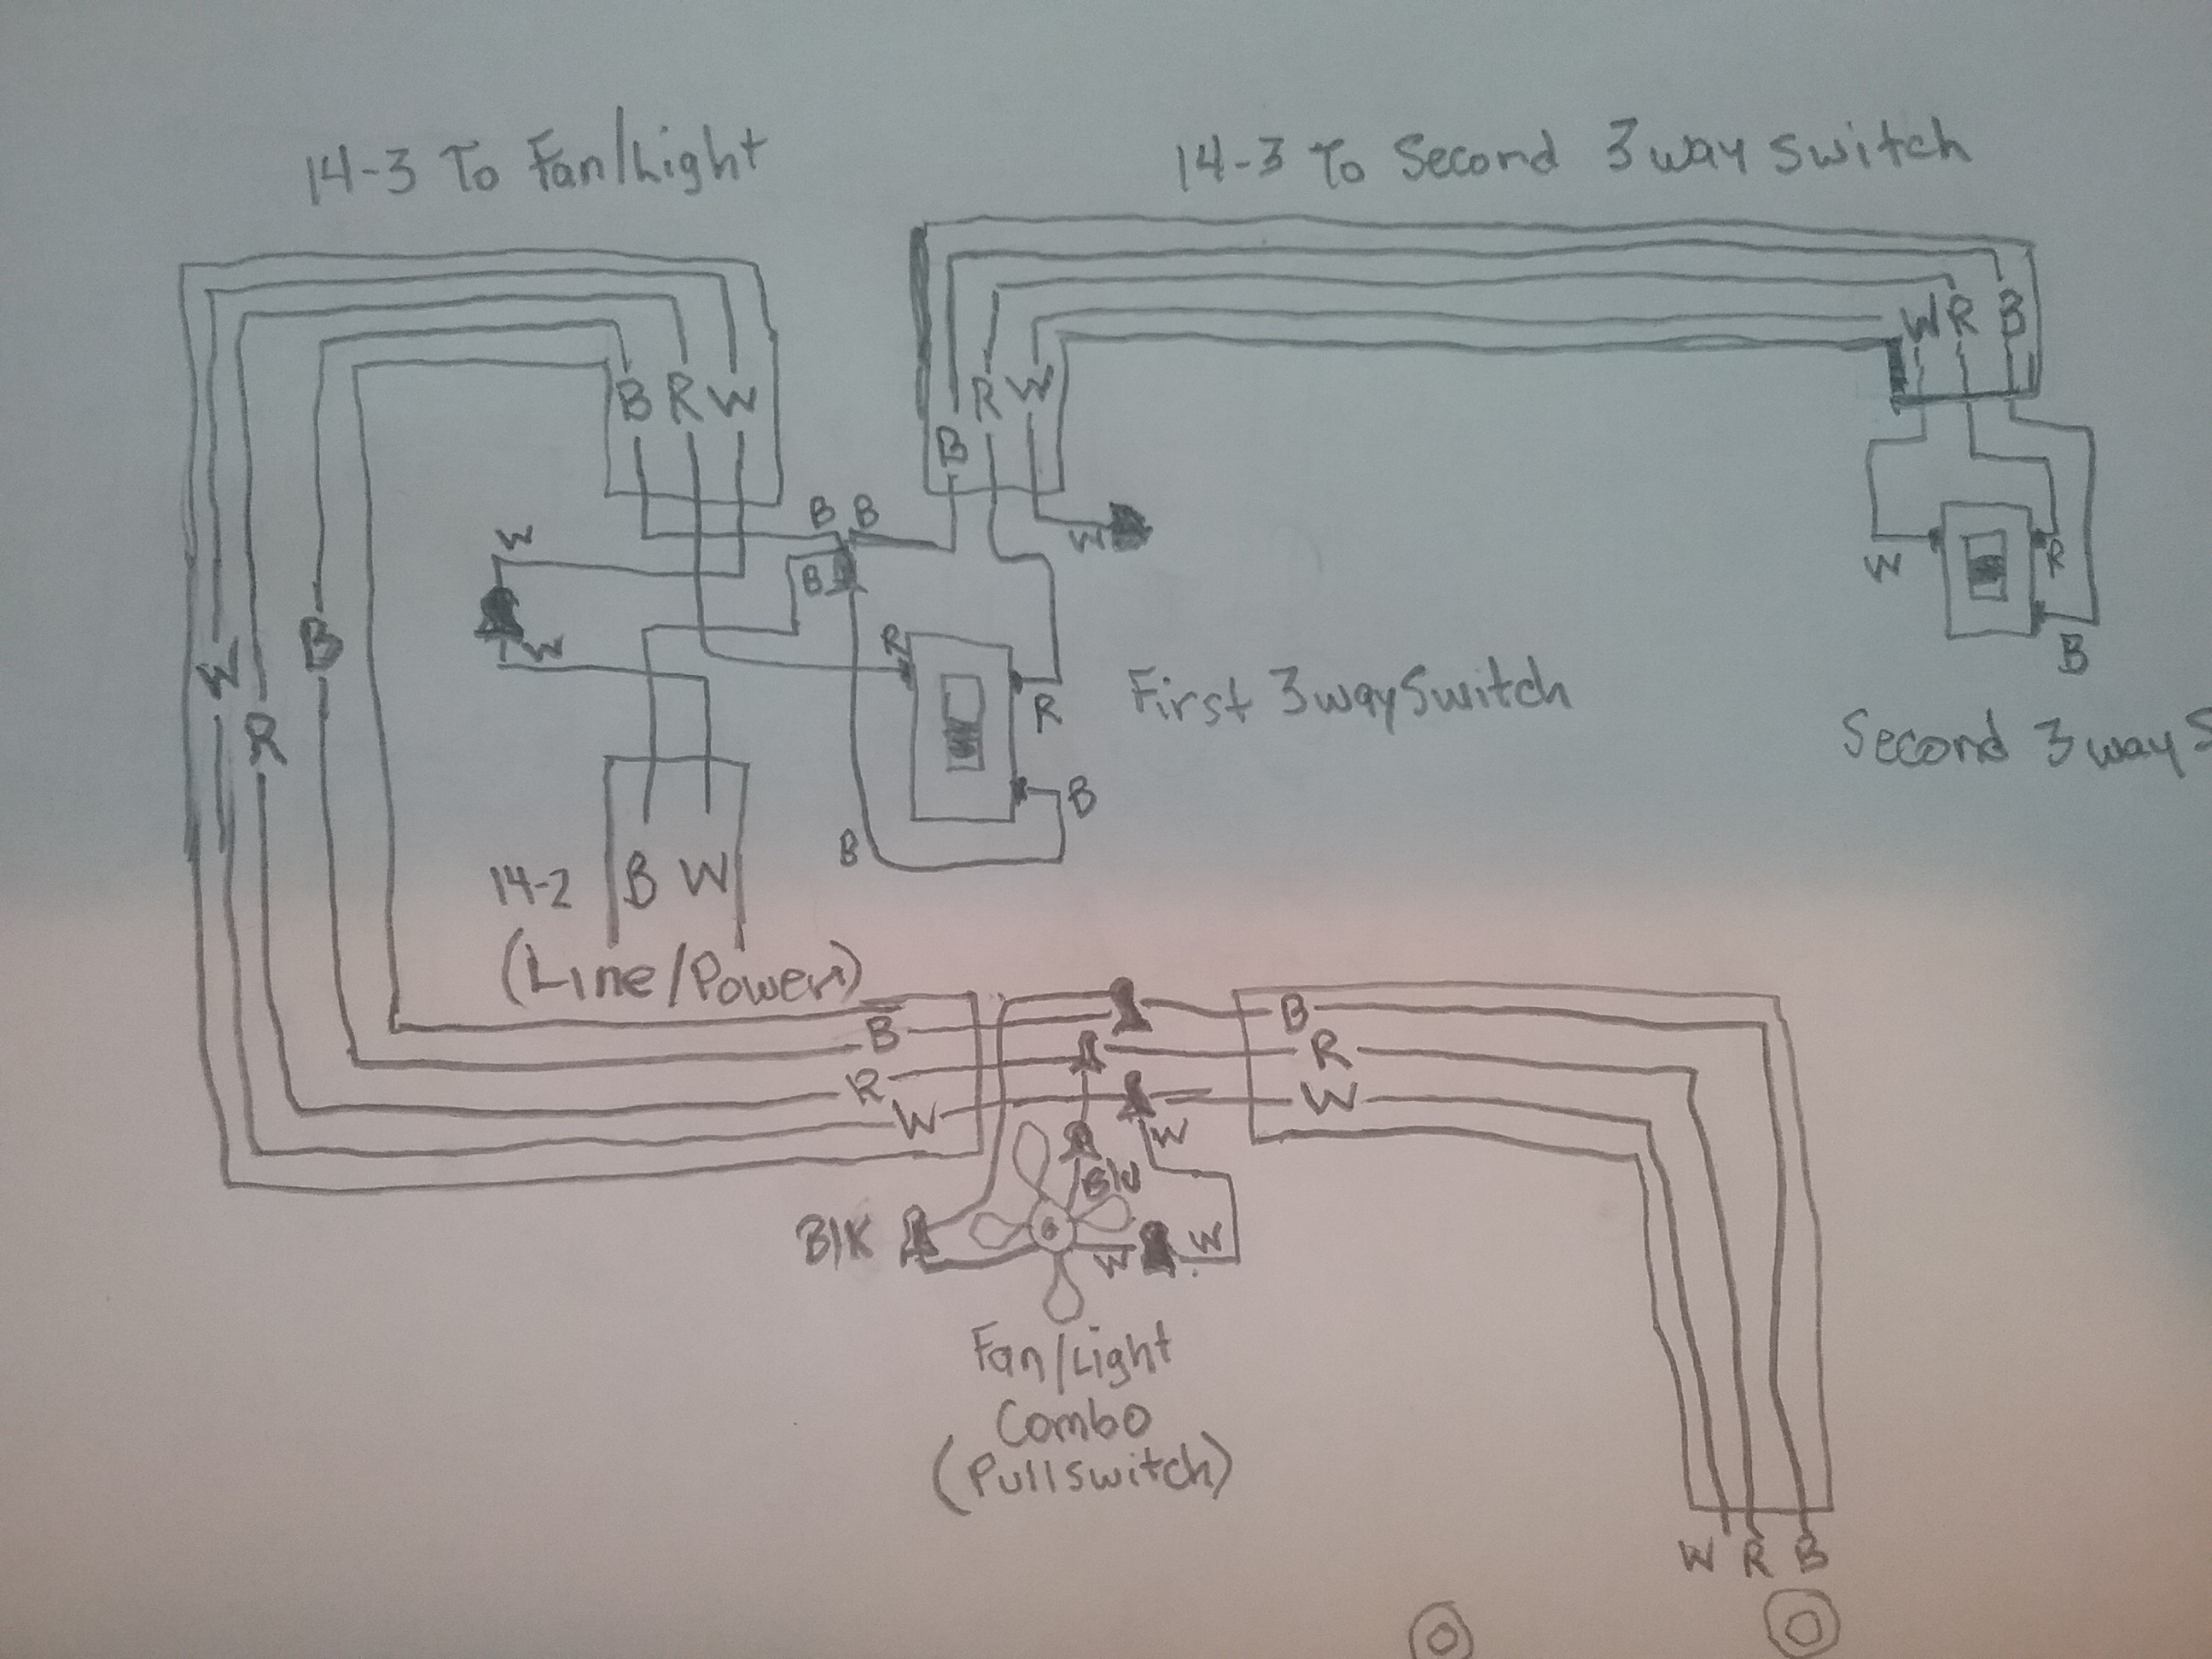 14-3 To Fan/Light
14-3 To Second 3 way Switch
W R B
B R W
R W
B
B B
W
W
B
W
R
W
R
B
W
B
R
First 3 way Switch
R
B
Second 3 way S
B
B
W
R
14-2
B W
(Line/Power)
B
R
W
B
R
W
W
Blu
Blk
W
W
Fan/Light
Combo
(Pullswitch)
W R B